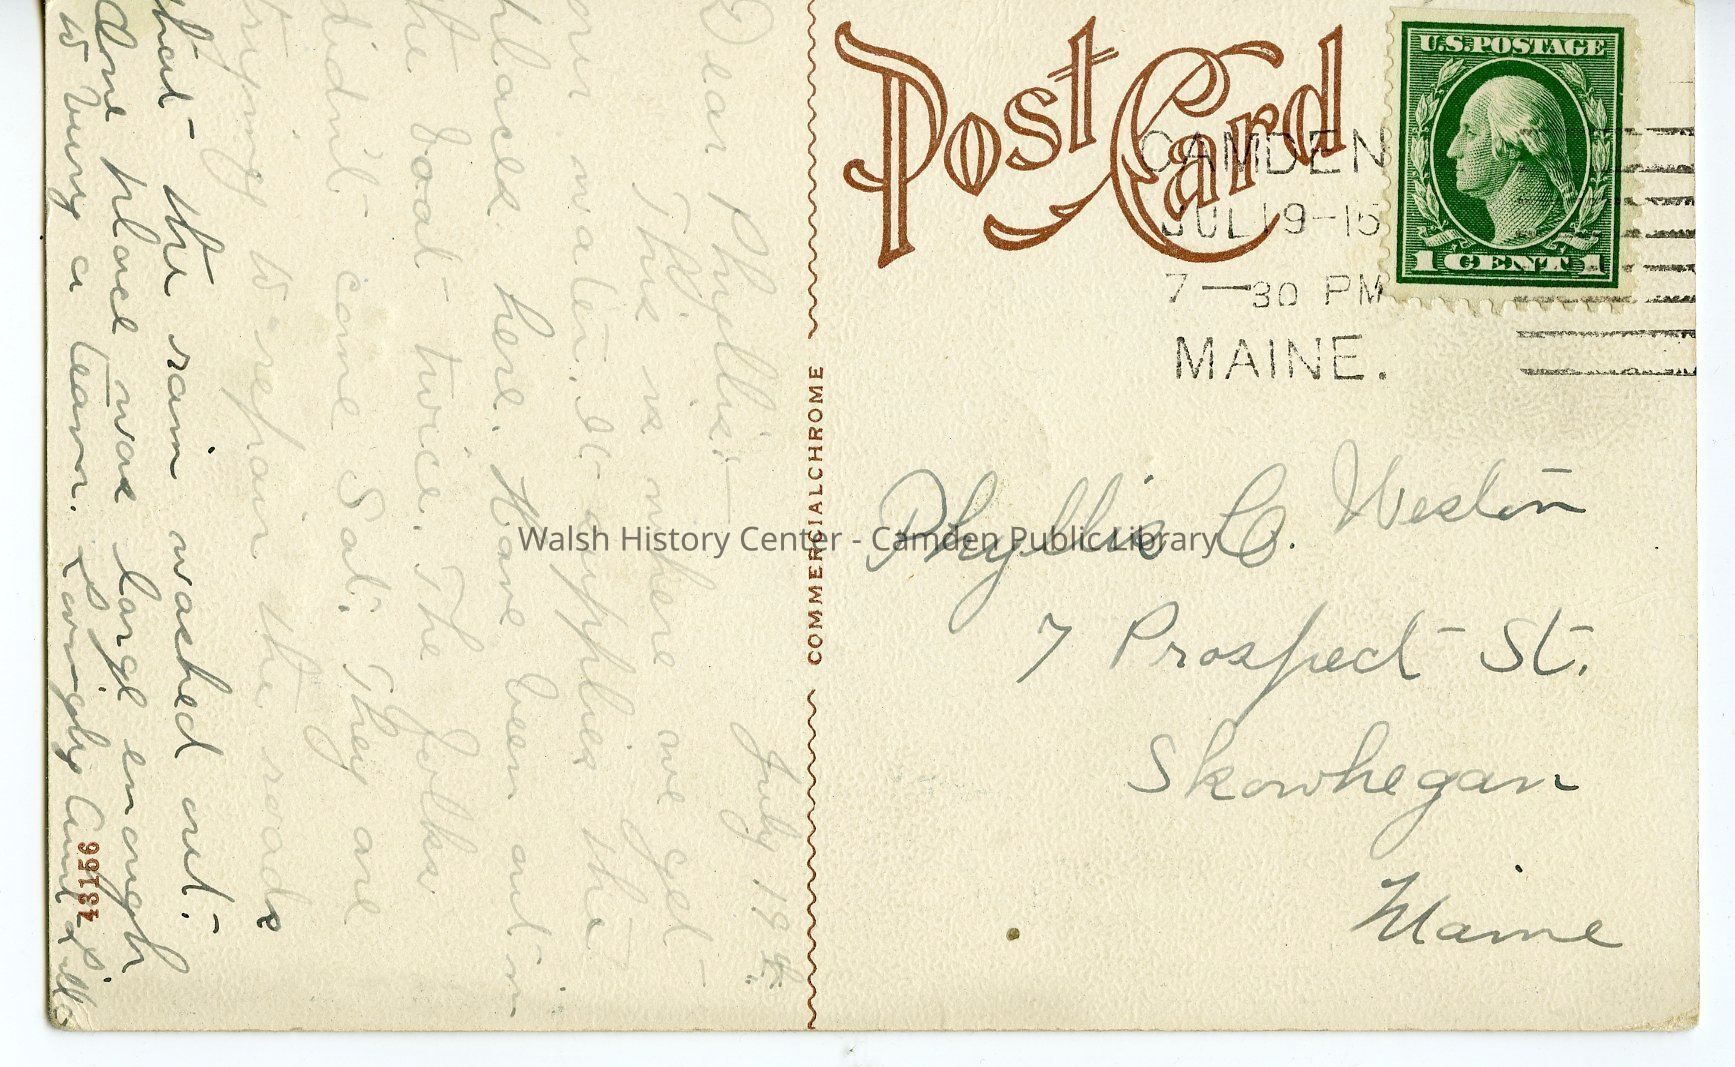 Post Card
U.S. POSTAGE
1 CENT 1
CAMDEN
JUL 19-15
7-30 PM
MAINE.
Phyllis C. Weston
7 Prospect St.
Skowhegan
Maine
COMMERCIALCHROME
July 19
Dear Phyllis:-
This is where we get
our water. It supplies the
places here. Have been out in
the boat twice. The folks
didn't come Sat. They are
trying to repair the roads
that the rain washed out.
One place was large enough
to bury a team. Lovingly Aunt
43156
Walsh History Center - Camden Public Library